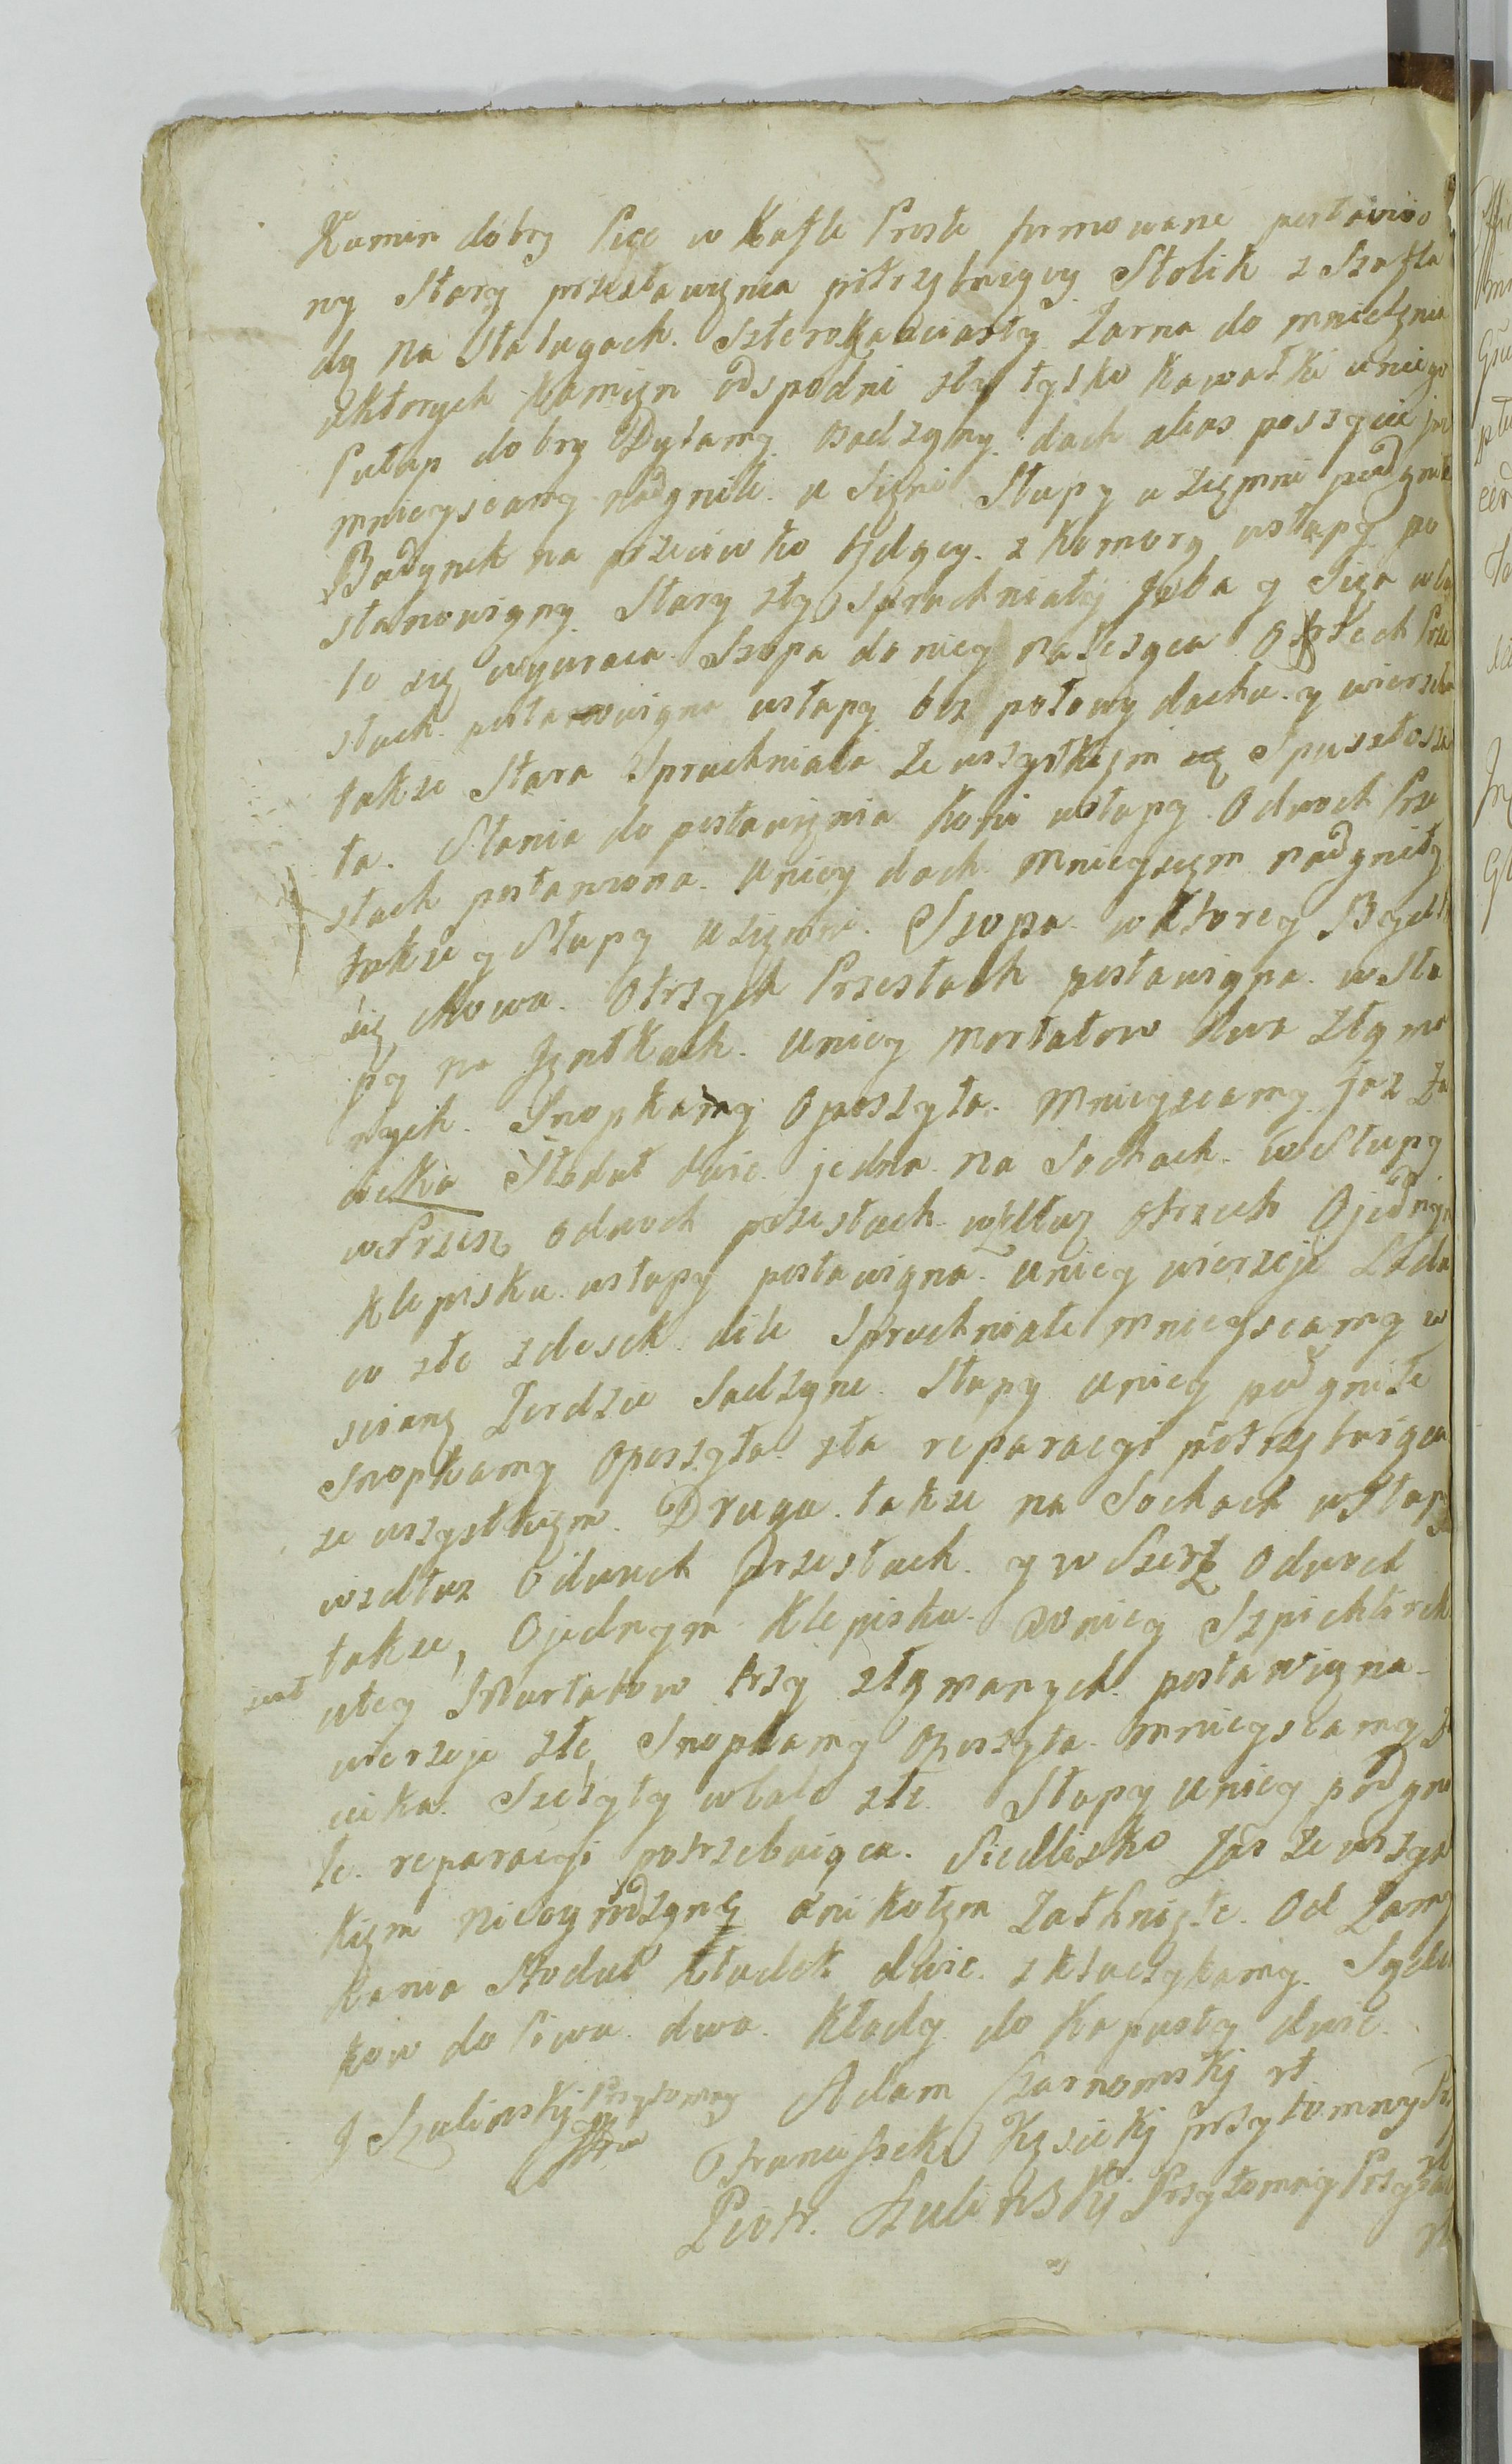 Kumin dobry Piec w Kafle Proste formowane postawio
ny Stary przestawięnia potrzybuięcy Stolik z Szufla
dą na Stalugach. Szterokanciasty Żarna do mnielęnia
Uktorych kamięn odspodni zły tysko kawałki uniego
Pułap dobry Dylamy osadzyny dach alias poszycie
mnieyscamy nadgniłe. u Sięni Słupy u zięmni podgniłe
Badynek na przeciwko Izdący z komorą wstupy po
stanowięny Stary zły Spruchniały Izba y Sięn w
le się wywraca Szopa do niey należąca O trzech Prze
słach postanowięna wstupy bez połowy dachu y wierzcha
także Stara Spruchniała ze wszystkięm Spustosza
ła. Stania do postawięnia koni wstupy O dwoch Prze
słach postawiona. Uniey dach mnieyscęm nadgniły
także y Słupy uzięmni. Szopa w ktorey Bydło
się chowa. O trzych Przesłach postawięna. w Słu
py na Szątkach. Uniey mortatow dwa złyma
nych. Snopkamy oposzyta. mnieyscamy jaż Za
cieka Stodoł dwie jedna na Sochach w Słupy
w Przesz Odwoch przesłach. wzdłuz Otrzech O jednym
klepisku wstupy postawięna. Uniey wierzeje
w złe zdesek dile Spruchniałe mnieyscamy w
scianę Żerdzie Sadzyne. Słupy Uniey podgniłe
Snopkamy oposzyta zła reparacyi potrzybuięca
ze wszystkięm. Druga także na Sochach w Słupy
wzdłuz Odwoch Przesłach y w Szerz Odwoch
także, O jednym Klepisku. Uniey Szpichlirek
jest
utey Murtatow trzy złymanych postawięna
wierzeje złe Snopkamy oposzyta mnieyscamy Za
cieka. Szczyty wcale złe. Słupy Uniey podgni
łe. reparacyi potrzebuięca. Siedlisko Zas ze wszyst
kięm nieogrodzynę ani kołęm Zathnięte. Od Zamy
kania Stodoł kłodek dwie z kluczykamy. Sądk
kow do Piwa dwa. Kłody do kapusty dwie.
J Szulinskij Przytomny Adam Czarnomskij rł
Franciszek Kęsickij przytomny
Piotr. Szulinskij Przytomny Przy